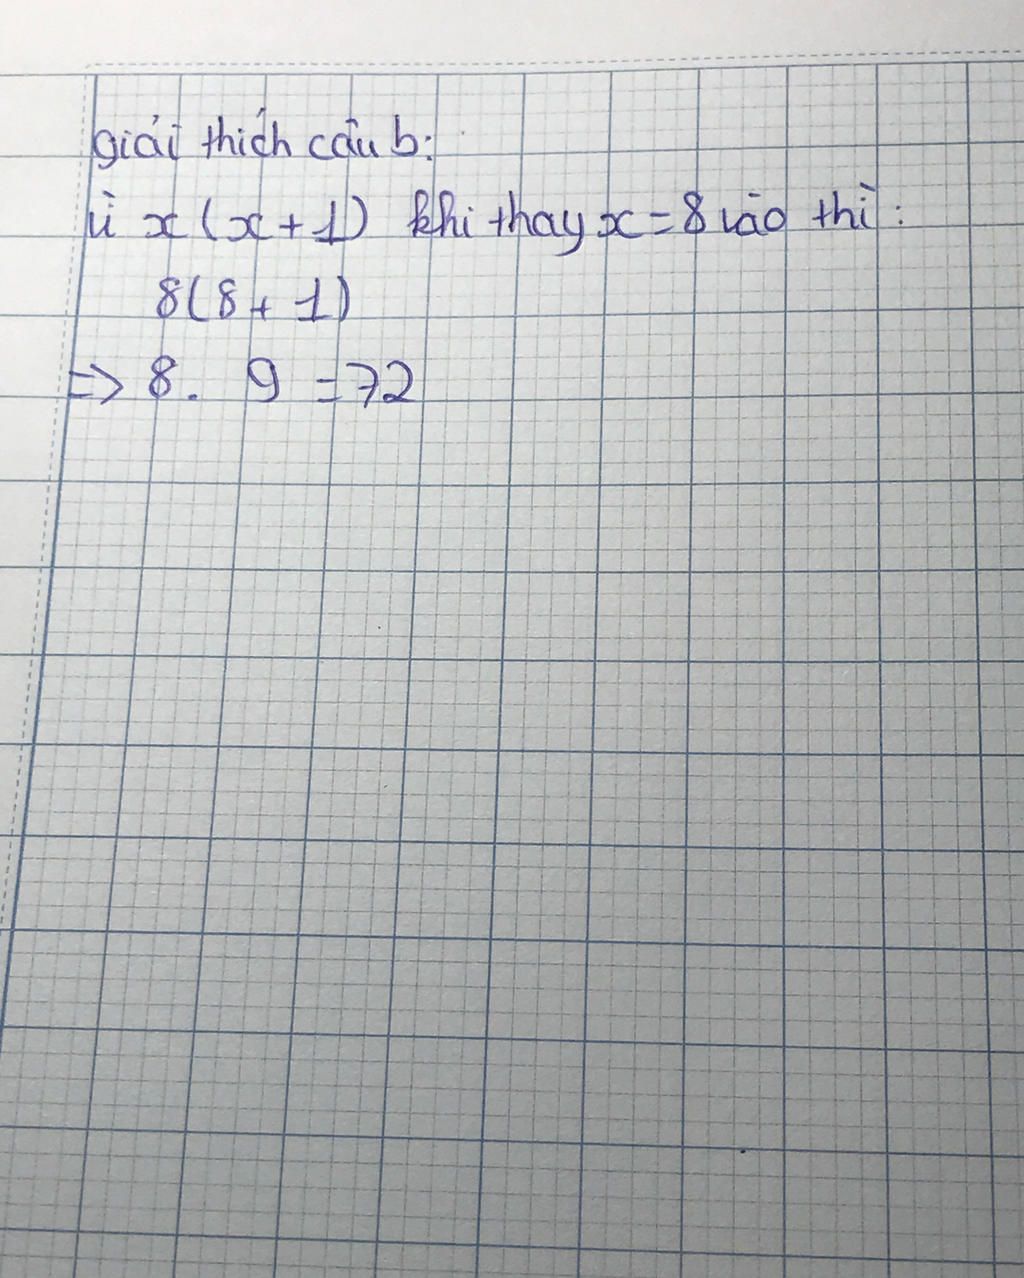 giải thích câu b:
vì x(x+1) khi thay x=8 vào thì:
8(8+1)
=> 8. 9 =72